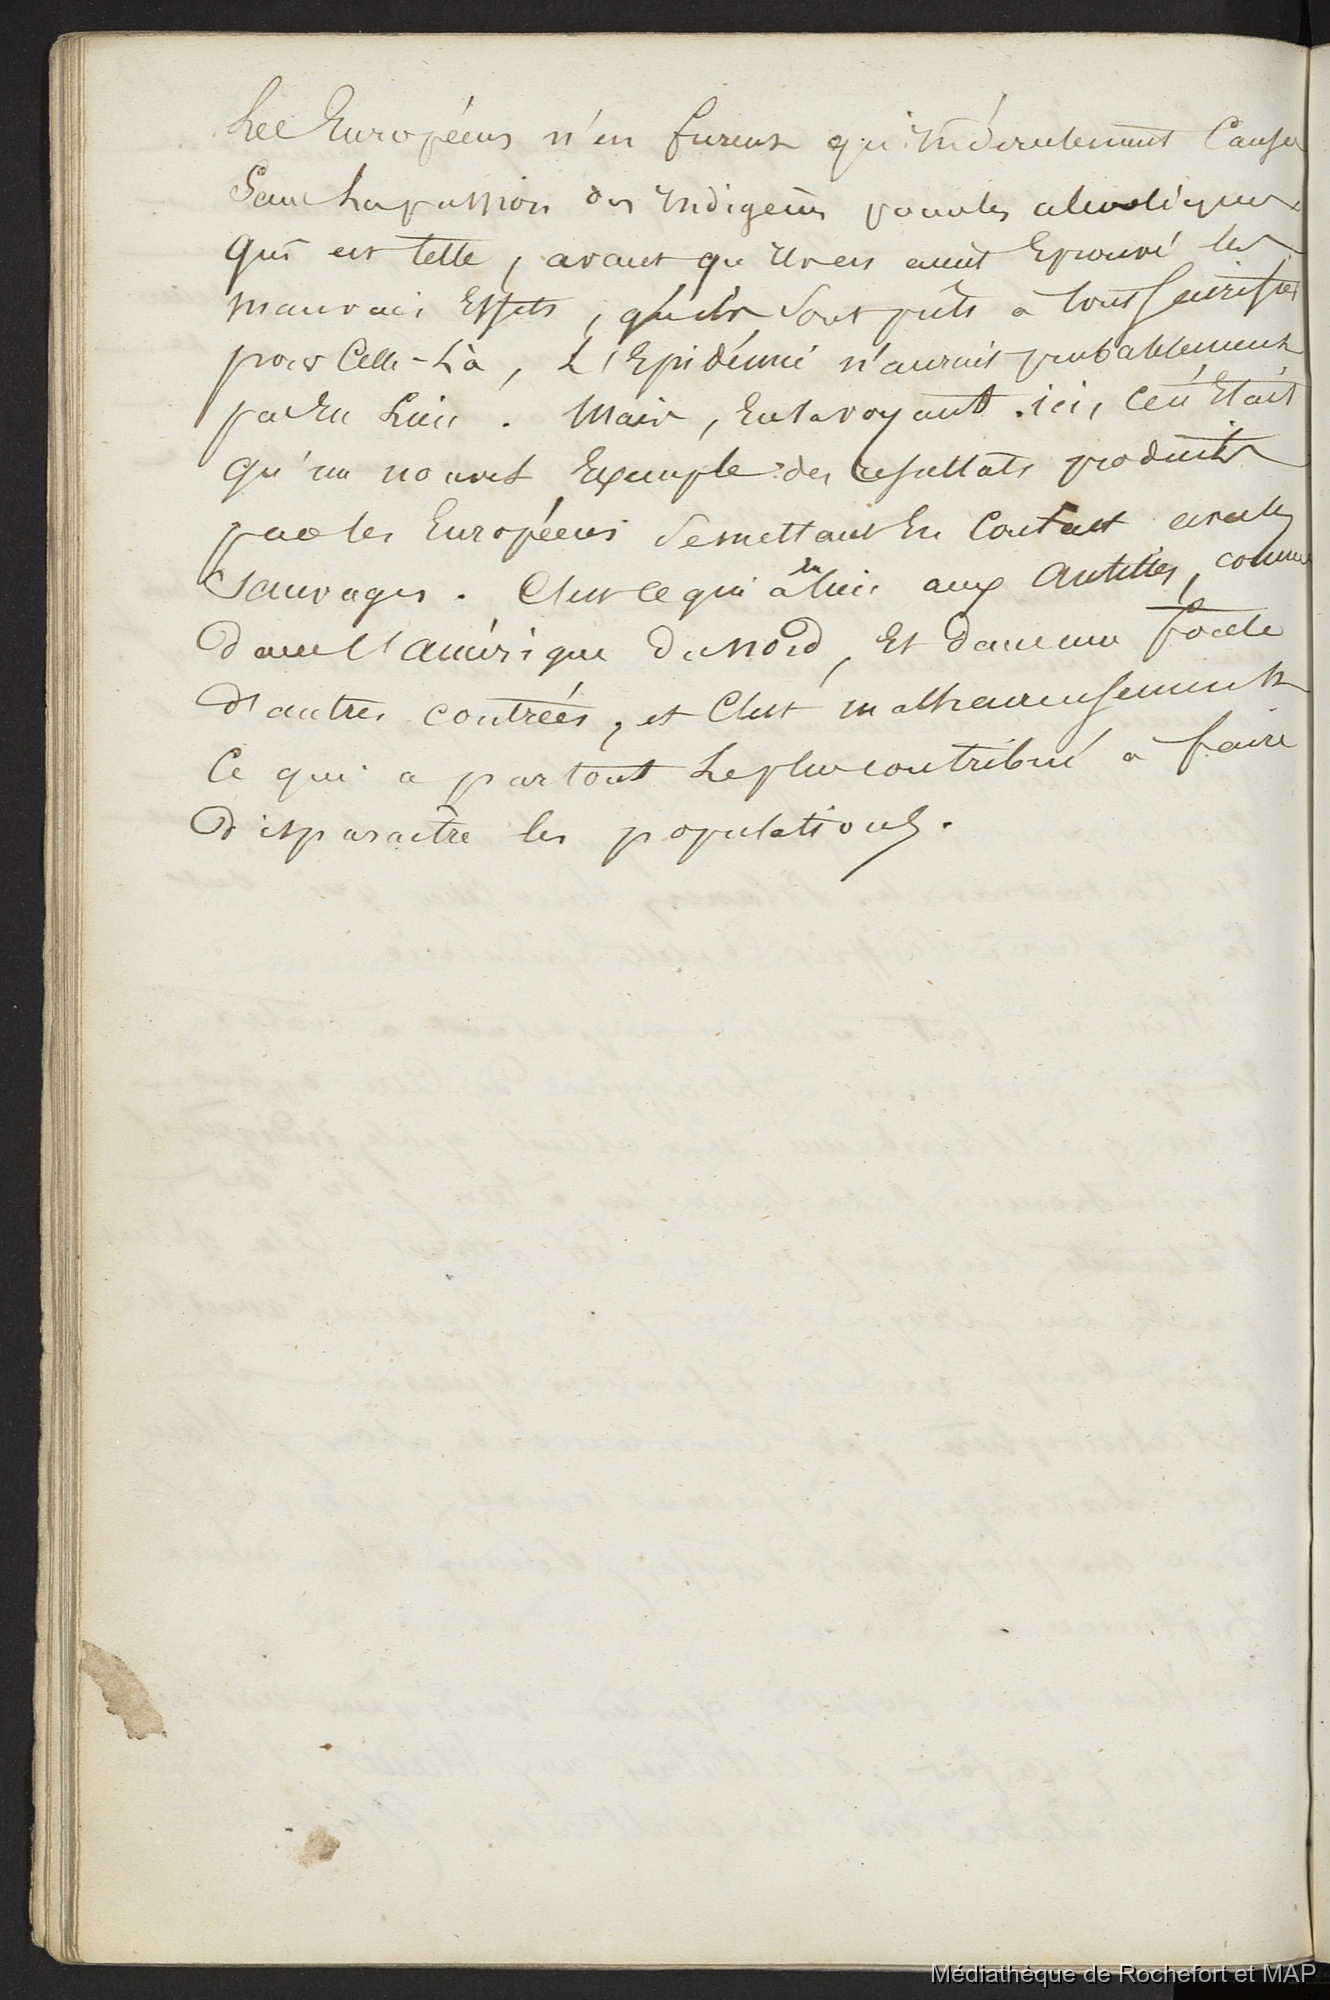 Les Européens n'en furent qu'indirectement Cause
Sans la passion des indigènes pour les alcooliques
qui est telle, avant qu'ils en aient Eprouvé les
mauvais Effets, qu'ils sont prêts à tout sacrifier
pour Celle-là, L'Epidémie n'aurait probablement
pas Eu Lieu. Mais, En la voyant ici, Ce n'Etait
qu'un nouvel Exemple des resultats produits
par les Européens se mettant En Contact avec les
Sauvages. C'est ce qui a eu lieu aux Antilles, comme
dans l'Amérique du Nord, Et dans une foule
d'autres contrées, et C'est malheureusement
Ce qui a partout Le plus contribué à faire
disparaitre les populations.
Médiathèque de Rochefort et MAP